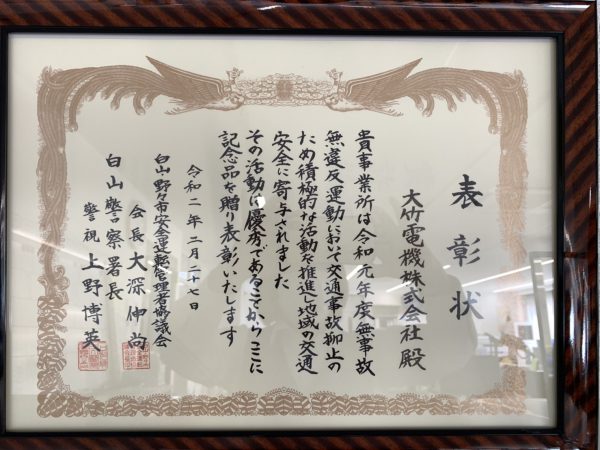 表彰状
大竹電機株式会社殿
貴事業所は令和元年度無事故
無違反運動において交通事故抑止の
ため積極的な活動を推進し地域の交通
安全に寄与されました
その活動は優秀であることからここに
記念品を贈り表彰いたします
令和二年二月二十七日
白山野々市安全運転管理者協議会
会長大深伸尚
白山警察署長
警視上野博英